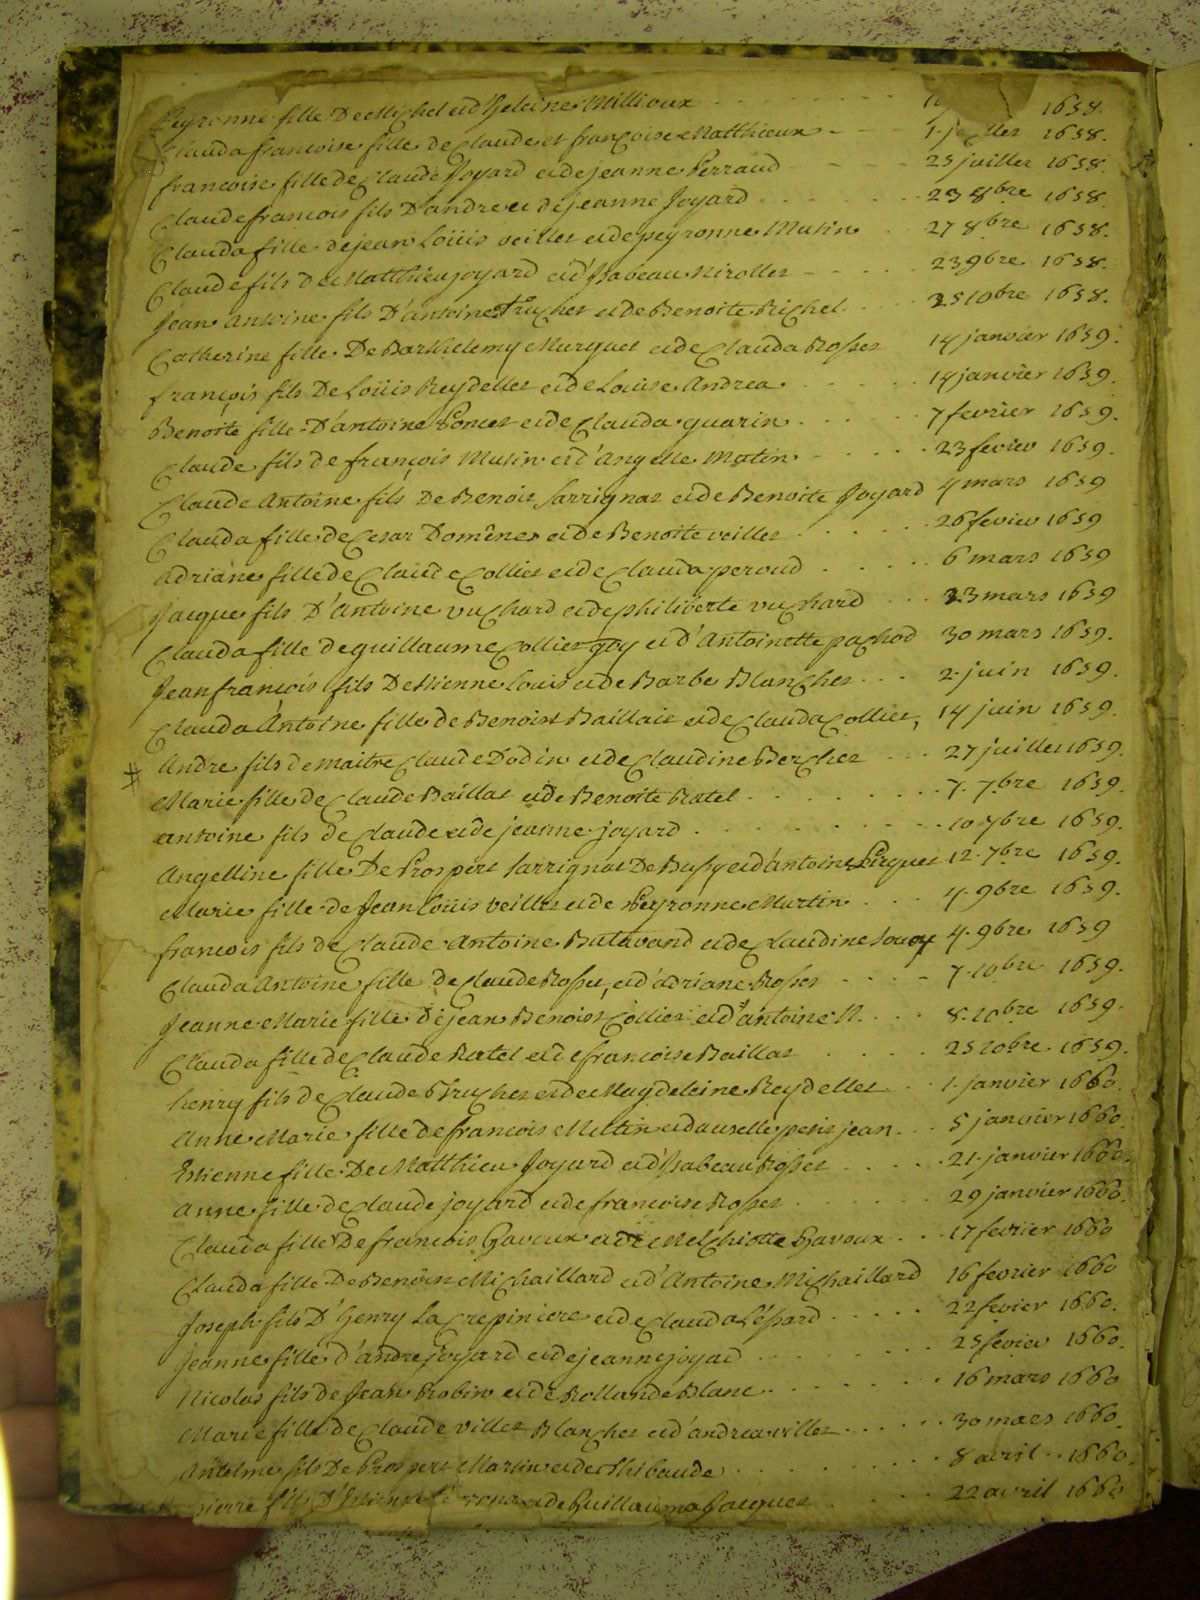 Peyronne fille De Michel et d'heleine Millioux 1658.
Clauda francoise fille de Claude et francoise Matthieux 1658.
francoise fille de Claude Joyard et de jeanne Perraud 25 juillet 1658.
Claude francois fils D'andre et de jeanne Joyard 23 8bre 1658.
Clauda fille de jean Loüis veillet et de peyronne Mutin 27 8bre 1658.
Claude fils de Matthieu joyard et d'Isabeau Nirollet 23 9bre 1658.
Jean Antoine fils D'antoine Truchet et de Benoite Richel 25 10bre 1658.
Catherine fille De Barthelemy Murguet et de Clauda Rosset 14 janvier 1659.
françois fils De Loüis Reydellet et de Louise Andrea 14 janvier 1659.
Benoite fille D'antoine Poncet et de Clauda guarin 7 fevrier 1659.
Claude fils de françois Mutin et d'Angelle Matin 23 fevrier 1659.
Claude Antoine fils De Benoit sarrignat et de Benoite Joyard 4 mars 1659
Clauda fille de Cesar Domêne et de Benoite veillet 26 fevier 1659
Adriane fille de Claude Collier et de Clauda peroud 6 mars 1659
Jacque fils D'Antoine vuchard et de philiberte vuchard 23 mars 1659
Clauda fille de guillaume Collier goy et d'Antoinette pachod 30 mars 1659.
Jean françois fils D'etienne louis et de Barbe Blanchet 2 juin 1659.
Clauda Antoine fille de Benoist Baillat et de Clauda Collier, 14 juin 1659.
# Andre fils de maitre Claude Dodin et de Claudine Berchet 27 juillet 1659.
Marie fille de Claude Baillat et de Benoite Ratel 7. 7bre 1659.
antoine fils de Claude et de jeanne joyard 10 7bre 1659.
Angelline fille De Prospert sarrignat De Bussy et d'antoine Perquet 12. 7bre 1659.
Marie fille de Jean Loüis veillet et de Peyronne Murtin 4. 9bre 1659.
francois fils de Claude Antoine Butavand et de Claudine 4. 9bre 1659
Clauda Antoine fille de Claude Rosset, et d'adriane Rosset 7. 10bre 1659.
Jeanne Marie fille de jean Benoist Collier et d'antoine N. 8. 10bre 1659.
Clauda fille de Claude Ratel et de francoise Baillat 25 10bre 1659.
henry fils de Claude Truchet et de Magdeleine Reydellet 1. janvier 1660.
Anne Marie fille de francois Mutin et d'auselle petit jean 5 janvier 1660.
Etienne fille De Matthieu Joyard et d'Isabeau Rosset 21 janvier 1660.
Anne fille de Claude joyard et de francoise Rosset 29 janvier 1660.
Clauda fille De francois Gavoux et de Melchiotte Gavoux 17 fevrier 1660
Clauda fille De Benoist Michaillard et d'Antoine Michaillard 16 fevrier 1660
Joseph fils D'henry La Crepiniere et de Clauda 22 fevier 1660.
Jeanne fille d'andre joyard et de jeanne joyad 25 fevier 1660.
Nicolas fils de Jean Robin et de Rollande Blanc 16 mars 1660
Marie fille de Claude villet Blanchet et d'andrea villet 30 mars 1660.
Antelme fils De Prospert Martin et de Thibaude 8 avril 1660.
pierre fils D'Etienne et de Guillauma Jacquet 22 avril 1660